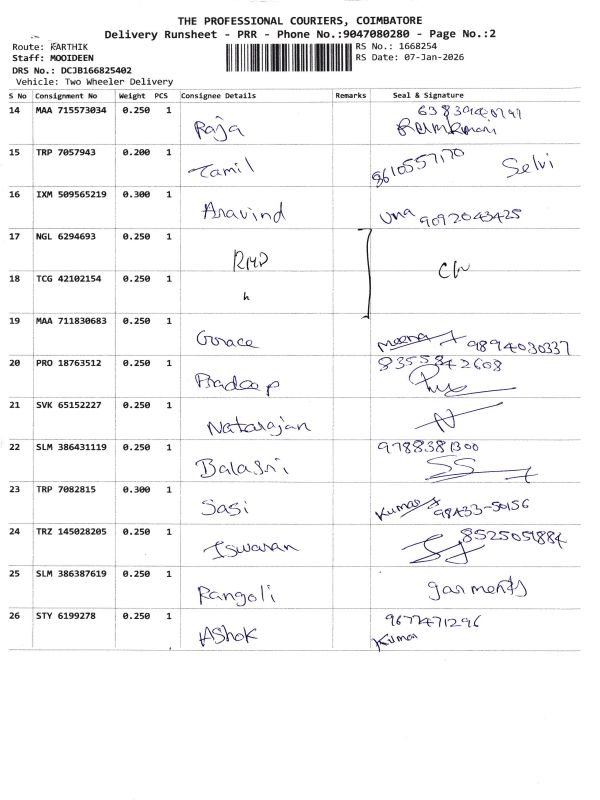 THE PROFESSIONAL COURIERS, COIMBATORE
Delivery Runsheet - PRR - Phone No.:9047080280 - Page No.:2
Route: KARTHIK
Staff: MOOIDEEN
DRS No.: DCJB166825402
Vehicle: Two Wheeler Delivery
RS No.: 1668254
RS Date: 07-Jan-2026
S No Consignment No Weight PCS Consignee Details Remarks Seal & Signature
14 MAA 715573034 0.250 1 Raja
15 TRP 7057943 0.200 1 Tamil 8610557170 Selvi
16 IXM 509565219 0.300 1 Aravind Uma 9092043425
17 NGL 6294693 0.250 1 RMD
18 TCG 42102154 0.250 1
19 MAA 711830683 0.250 1 Grace Meena 9894030337
20 PRO 18763512 0.250 1 Pradeep 8355842608
21 SVK 65152227 0.250 1 Natarajan N
22 SLM 386431119 0.250 1 Balasri 9788381300
SS
23 TRP 7082815 0.300 1 Sasi Kumar 98433-50156
24 TRZ 145028205 0.250 1 Iswaran 8525051884
25 SLM 386387619 0.250 1 Rangoli garments
26 STY 6199278 0.250 1 Ashok 9677471296
Kumar